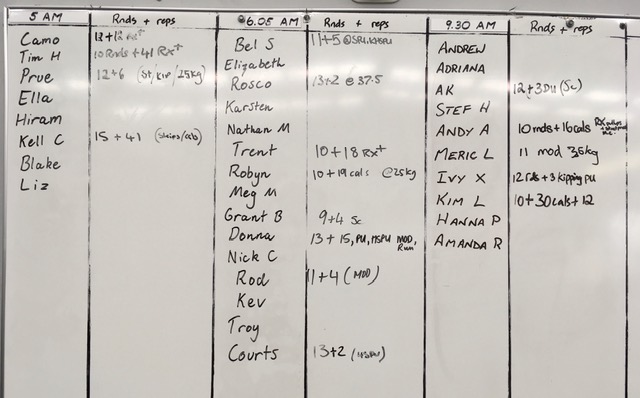 5 AM
Rnds + reps
Camo 12+12 Rx+
Tim H 10 Rnds + 41 Rx+
Prue 12+6 (St/Kip/25kg)
Ella
Hiram
Kell C 15+41
Blake
Liz
6.05 AM
Rnds + reps
Bel S 11+5
Elizabeth
Rosco 13+2 @ 37.5
Karsten
Nathan M
Trent 10+18 Rx+
Robyn 10+19 cals @25kg
Meg M
Grant B 9+4 Sc
Donna 13+15, PU, HSPU MOD, Run
Nick C
Rod 11+4 (MOD)
Kev
Troy
Courts 13+2 (HSPU)
9.30 AM
Rnds + reps
ANDREW
ADRIANA
AK 12+3DU (Sc)
STEF H
ANDY A 10 rnds + 16 cals RX
MERIC L 11 mod 35kg
IVY X 12 rds + 3 kipping PU
KIM L 10+30cals+12
HANNA P
AMANDA R